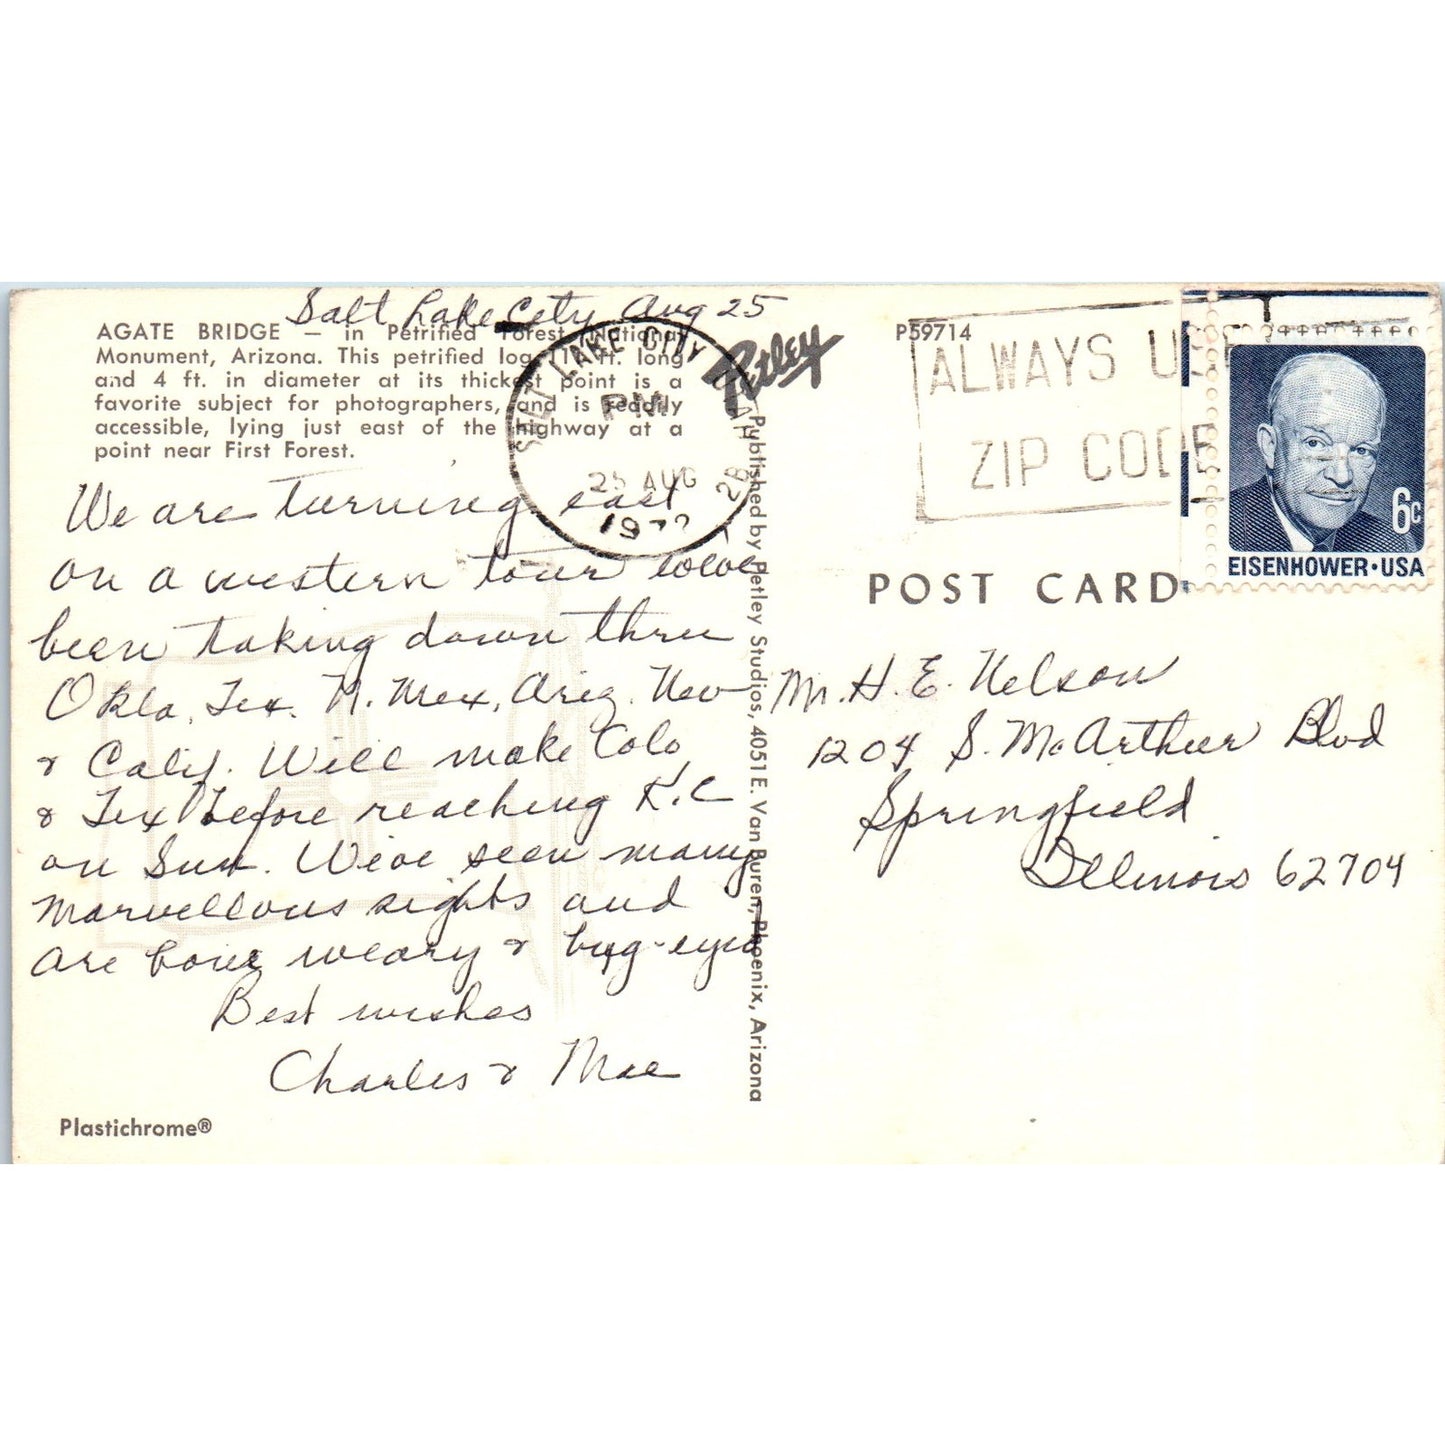 Salt Lake City Aug 25
AGATE BRIDGE — in Petrified Forest National
Monument, Arizona. This petrified log, 110 ft. long
and 4 ft. in diameter at its thickest point is a
favorite subject for photographers, and is readily
accessible, lying just east of the highway at a
point near First Forest.
We are turning east
on a western tour weve
been taking down thru
Okla, Tex. N. Mex, Ariz. Nev
& Calif. Will make Colo,
& Tex before reaching K.C
on Sun. Weve seen many
marvellous sights and
are bone weary & bug-eyed
Best wishes
Charles & Mae
Plastichrome®
SALT LAKE CITY UTAH
PM
25 AUG
197
Petley
Published by Petley Studios, 4051 E. Van Buren, Phoenix, Arizona
P59714
ALWAYS USE
ZIP CODE
6c
EISENHOWER·USA
POST CARD
Mr. H. E. Nelson
1204 S. McArthur Blvd
Springfield
Illinois 62704